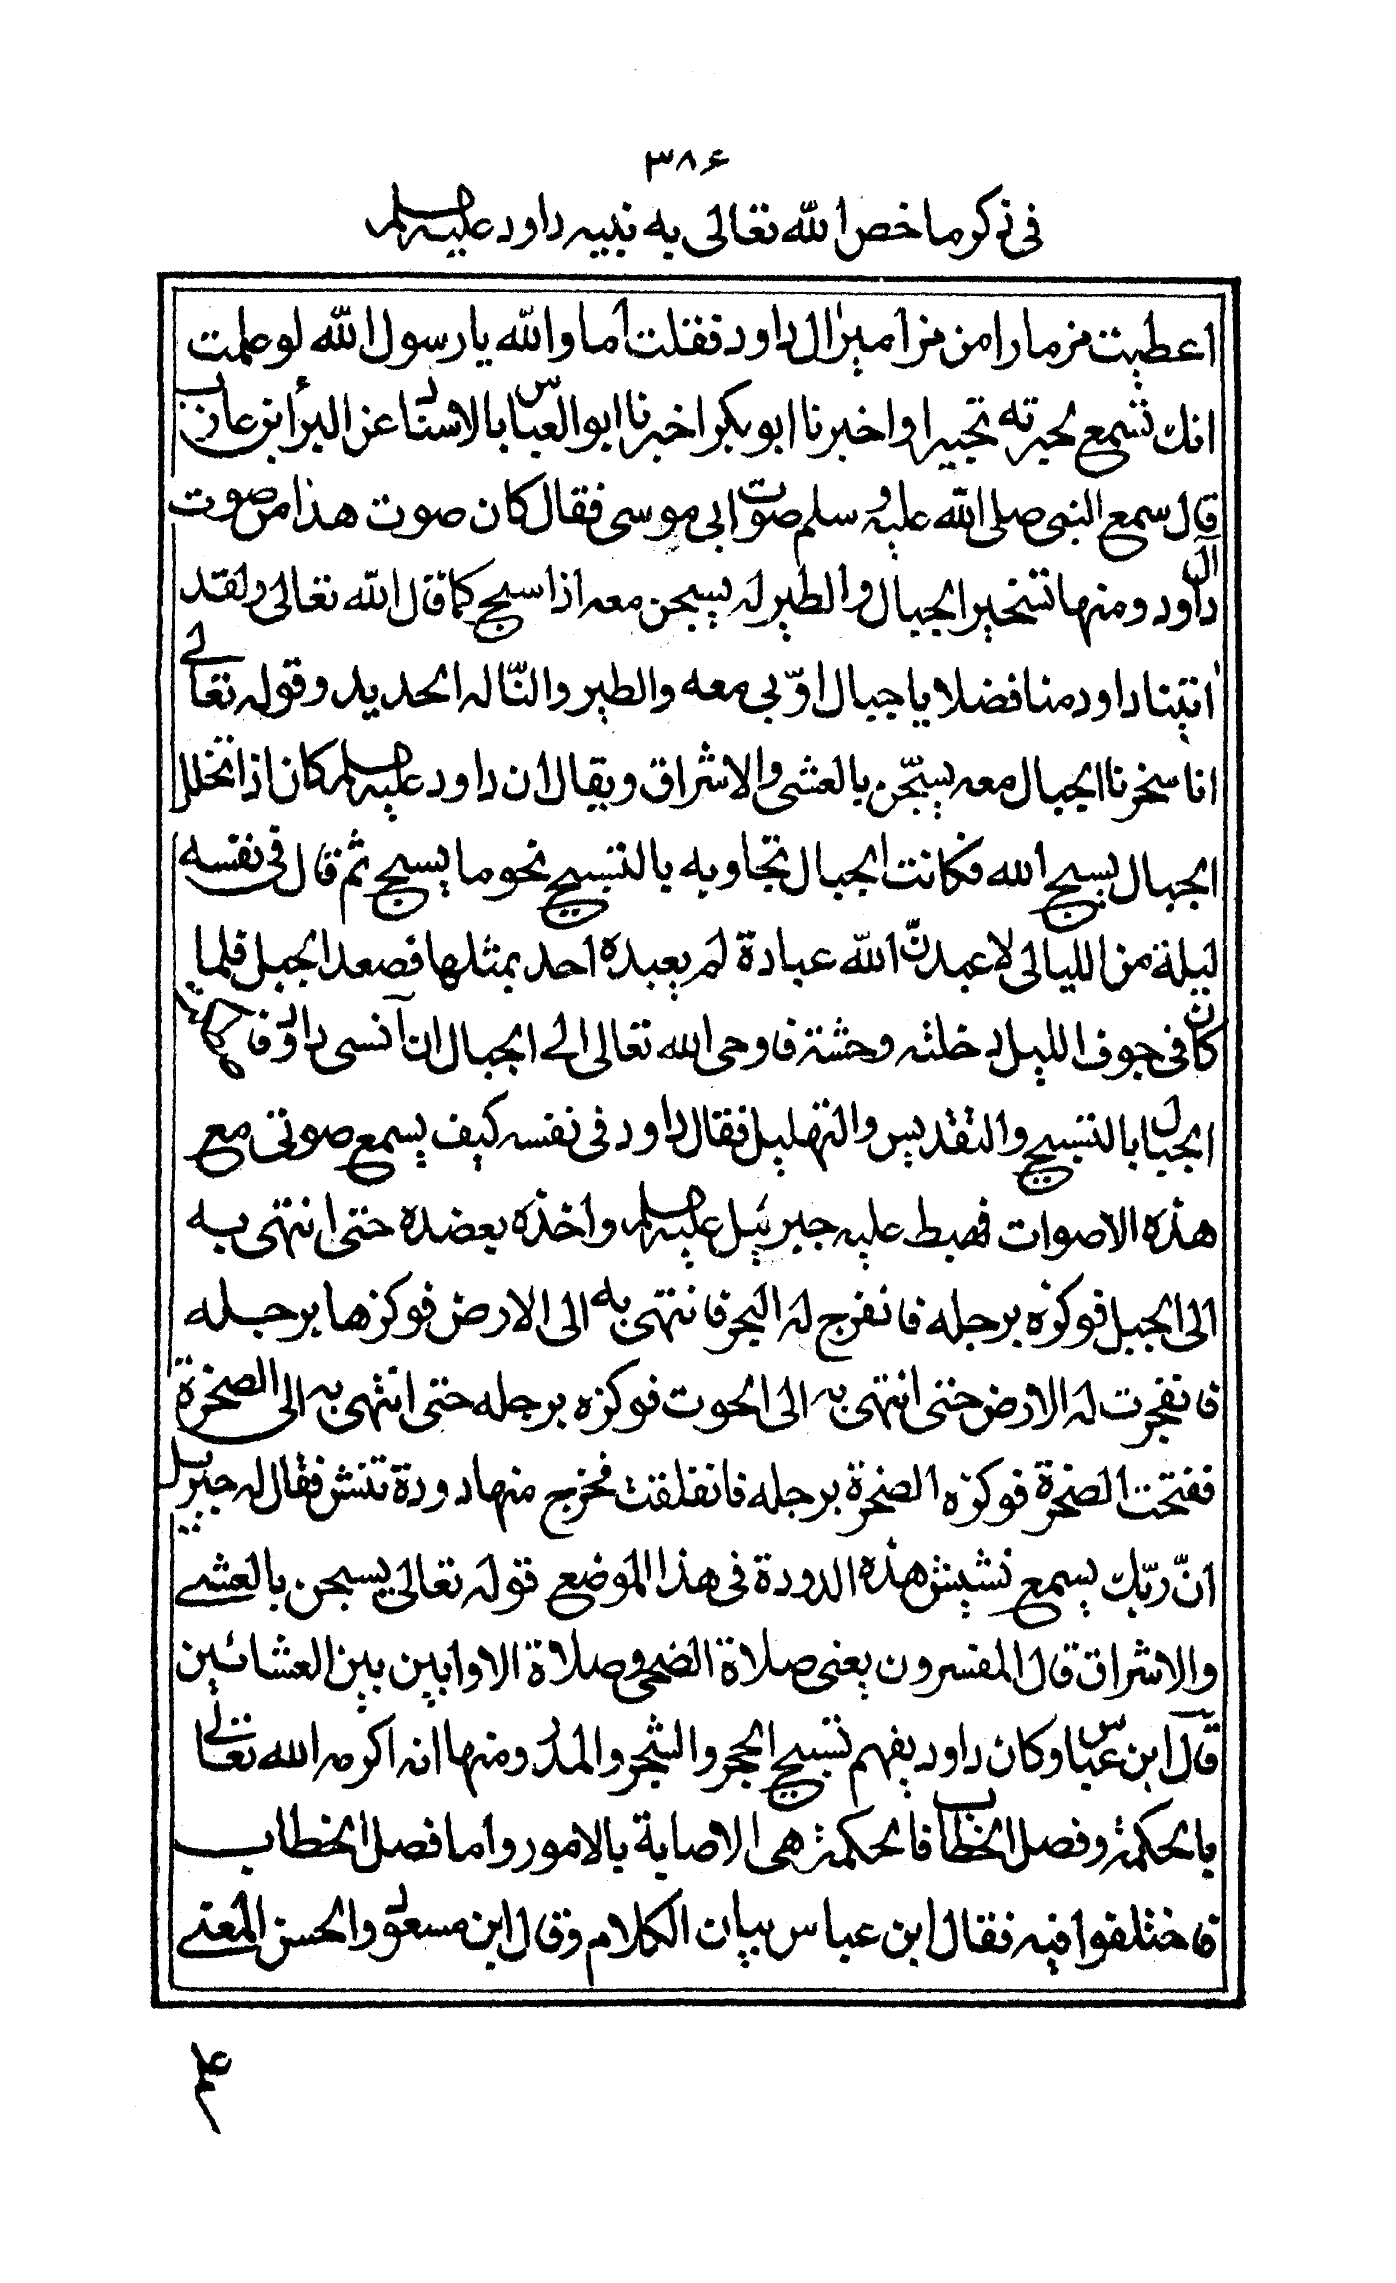 ٣٨۶
فى ذكر ما خص الله تعالى به نبيه داود عليه السلم
اعطيت مزمارا من مزامير ال داود فقلت اما والله يا رسول الله لو علمت
انك تسمع لحبرته تحبيرا واخبرنا ابو بكر اخبرنا ابو العباس بالاسناد عن البرأ ابن عازب
قال سمع النبى صلى الله عليه وسلم صوت ابى موسى فقال كان صوت هذا من صوت
ال داود ومنها تسخير الجبال والطير له يسبحن معه اذا سبح كما قال الله تعالى ولقد
اتينا داود منا فضلا يا جبال اوّبى معه والطير والنّا له الحديد وقوله تعالى
انا سخرنا الجبال معه يسبّحن بالعشى والاشراق ويقال ان داود عليه السلم كان اذا تخلل
الجبال يسبح الله فكانت الجبال تجاوبه بالتسبيح نحو ما يسبح ثم قال فى نفسه
ليلة من الليالى لاعبدنّ الله عبادة لم يعبده احد بمثلها فصعد الجبل فلما
كان فى جوف الليل دخلته وحشة فاوحى الله تعالى الى الجبال ان آنسى داود فا
الجبال بالتسبيح والتقديس والتهليل فقال داود فى نفسه كيف يسمع صوتى مع
هذه الاصوات فهبط عليه جبرئيل عليه السلم واخذه بعضده حتى انتهى به
الى الجبل فوكزه برجله فانفرج له البحر فانتهى به الى الارض فوكزها برجله
فانفجرت له الارض حتى انتهى به الى الحوت فوكزه برجله حتى انتهى به الى الصخرة
ففتحت الصخرة فوكزه الصخرة برجله فانفلقت فخرج منها دودة تنش فقال له جبريل
انّ ربّك يسمع نشيش هذه الدودة فى هذا الموضع قوله تعالى يسبحن بالعشى
والاشراق قال المفسرون يعنى صلاة الضحى وصلاة الاوابين بين العشائين
قال ابن عباس وكان داود يفهم تسبيح الحجر والشجر والمدر ومنها انه اكرمه الله تعالى
بالحكمة وفصل الخطاب فالحكمة هى الاصابة بالامور واما فصل الخطاب
فاختلفوا فيه فقال ابن عباس بيان الكلام وقال ابن مسعود والحسن المعنى
علم